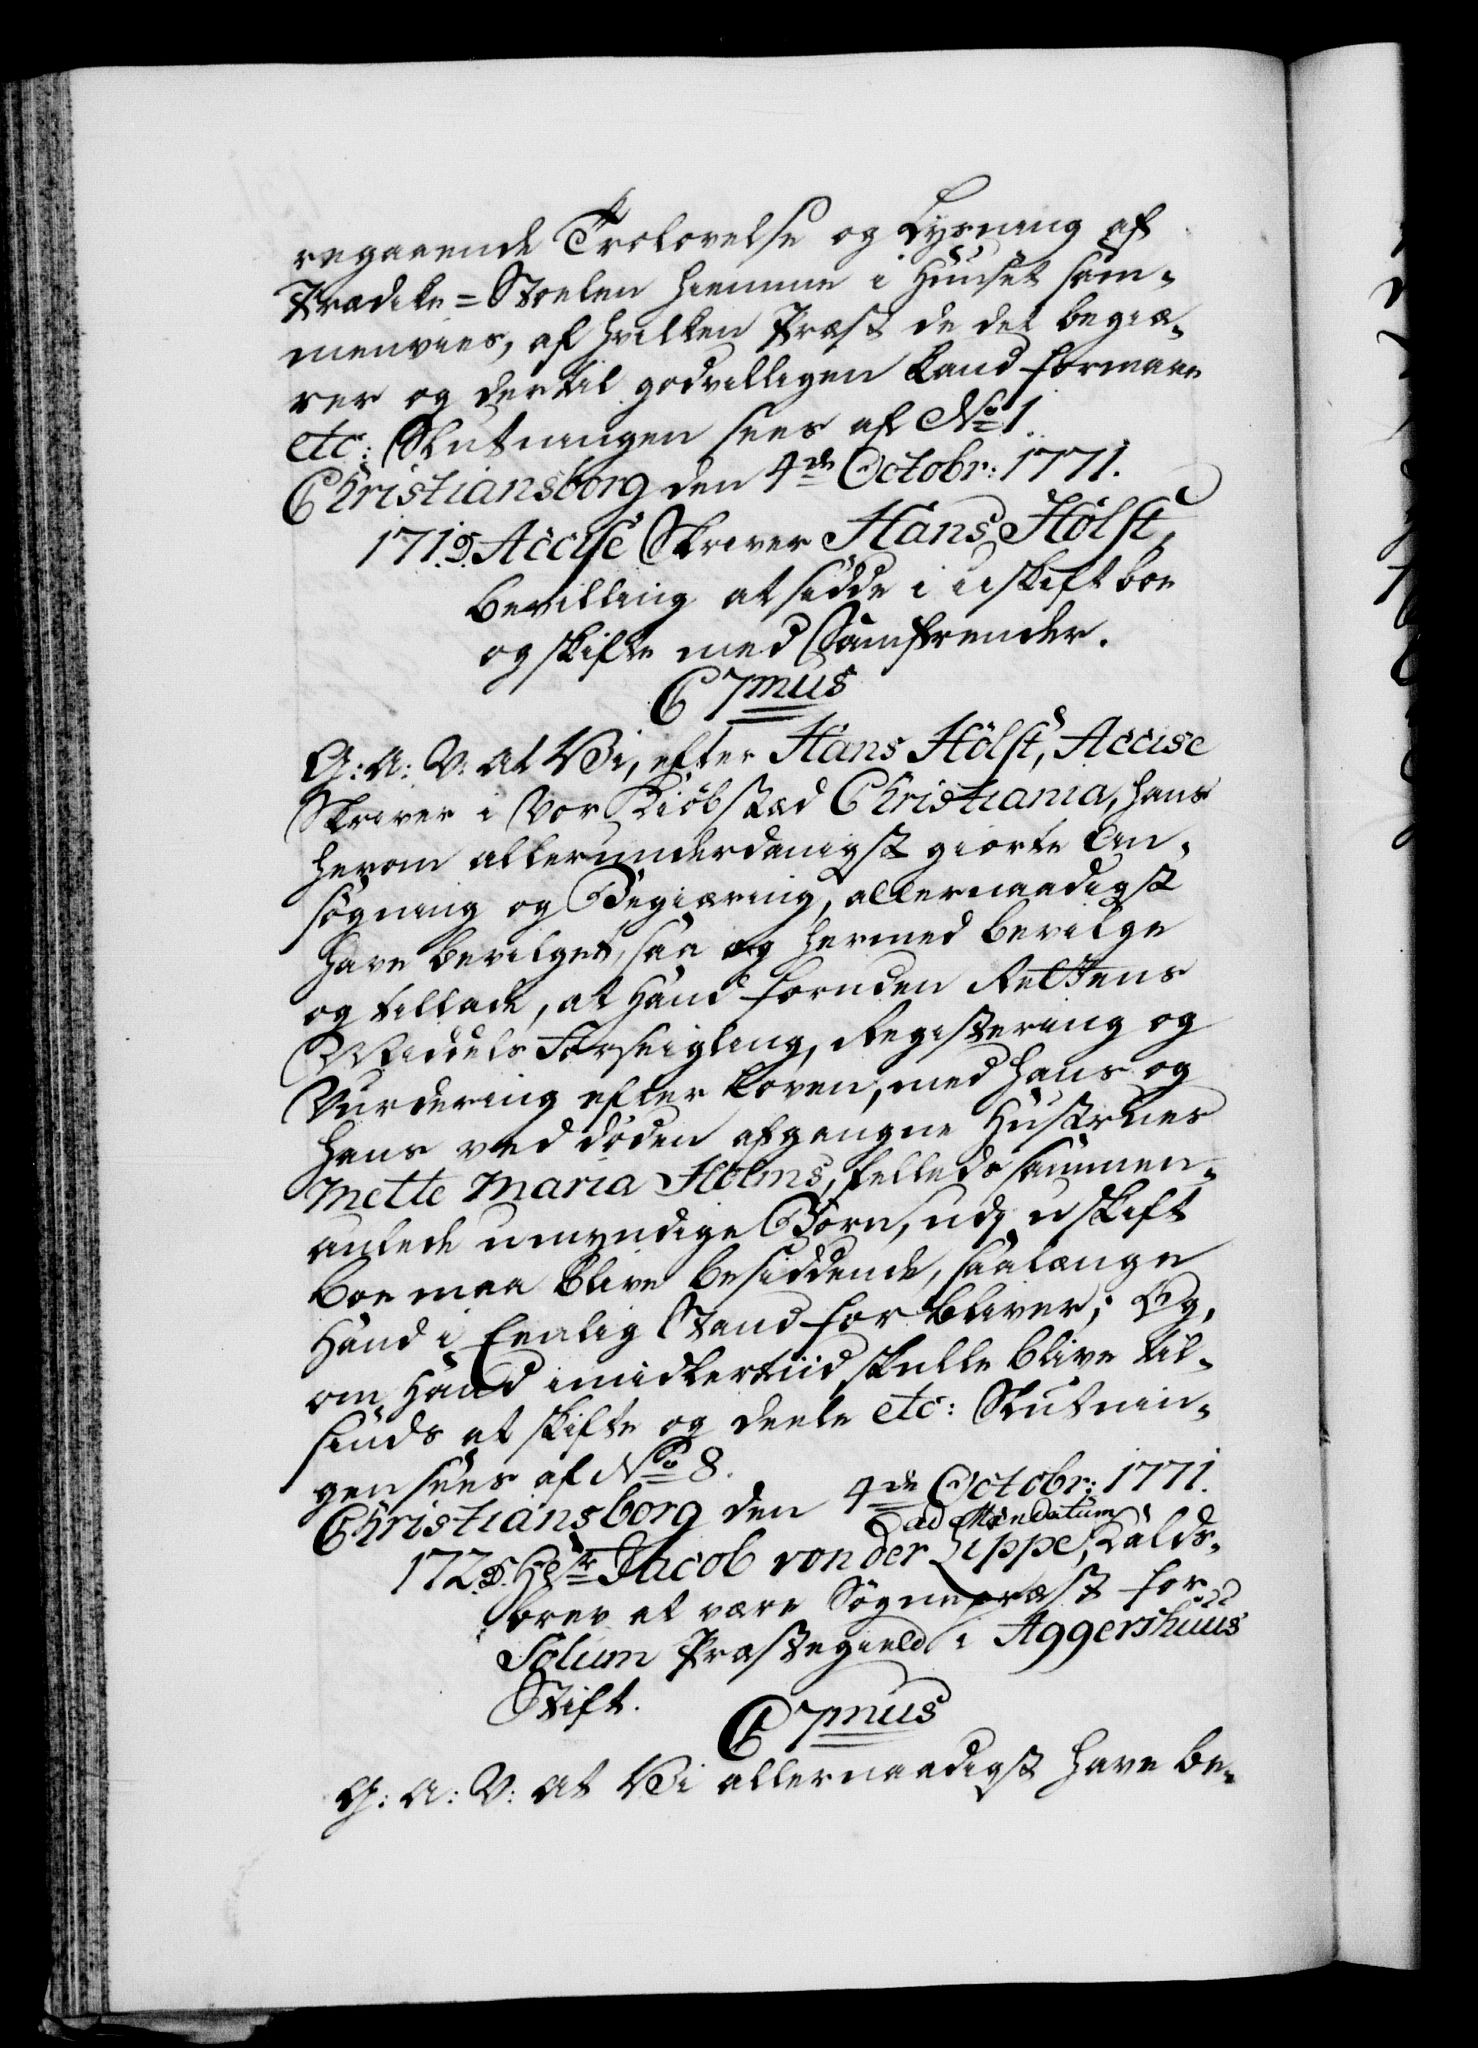 regaaende Trolovelse og Lysning af
Prædike=Stoelen hiemme i Huuset sam-
menvies, af hvilken Præst de det begiæ-
rer og dertil godvilligen kand formaae
etc: Slutningen sees af No 1
Christiansborg den 4de Octobr: 1771.
171. Accise Skriver Hans Holst,
Bevilling at sidde i uskift boe
og skifte med Samfrender.
C 7mus
G: A: V: at Vi, efter Hans Holst, Accise
Skriver i Vor Kiöbstæd Christiania, hans
herom allerunderdanigst giorte An-
søgning og Begiæring, allernaadigst
have bevilget, saa og hermed bevilge
og tillade, at Hand foruden Rettens
Middels Forseigling, Registering og
Vurdering efter Loven, med hans og
hans ved döden afgangne Hustrues
Mette Maria Holms, felleds sammen-
aulede umyndige Börn, udj uskift
Boe maa blive besiddende, saalænge
Hand i Eenlig Stand forbliver; Og,
om Hand imidlertiid skulle blive til-
sinds at skifte og deele etc: Slutnin-
gen sees af No 8.
Christiansborg den 4de Octobr: 1771.
ad Mandatum
172. Hr Jacob von der Lippe, Kalds-
brev at være Sögnepræst for
Solum Præstegield i Aggershuus
Stift.
C 7mus
G: A: V: at Vi allernaadigst have be-